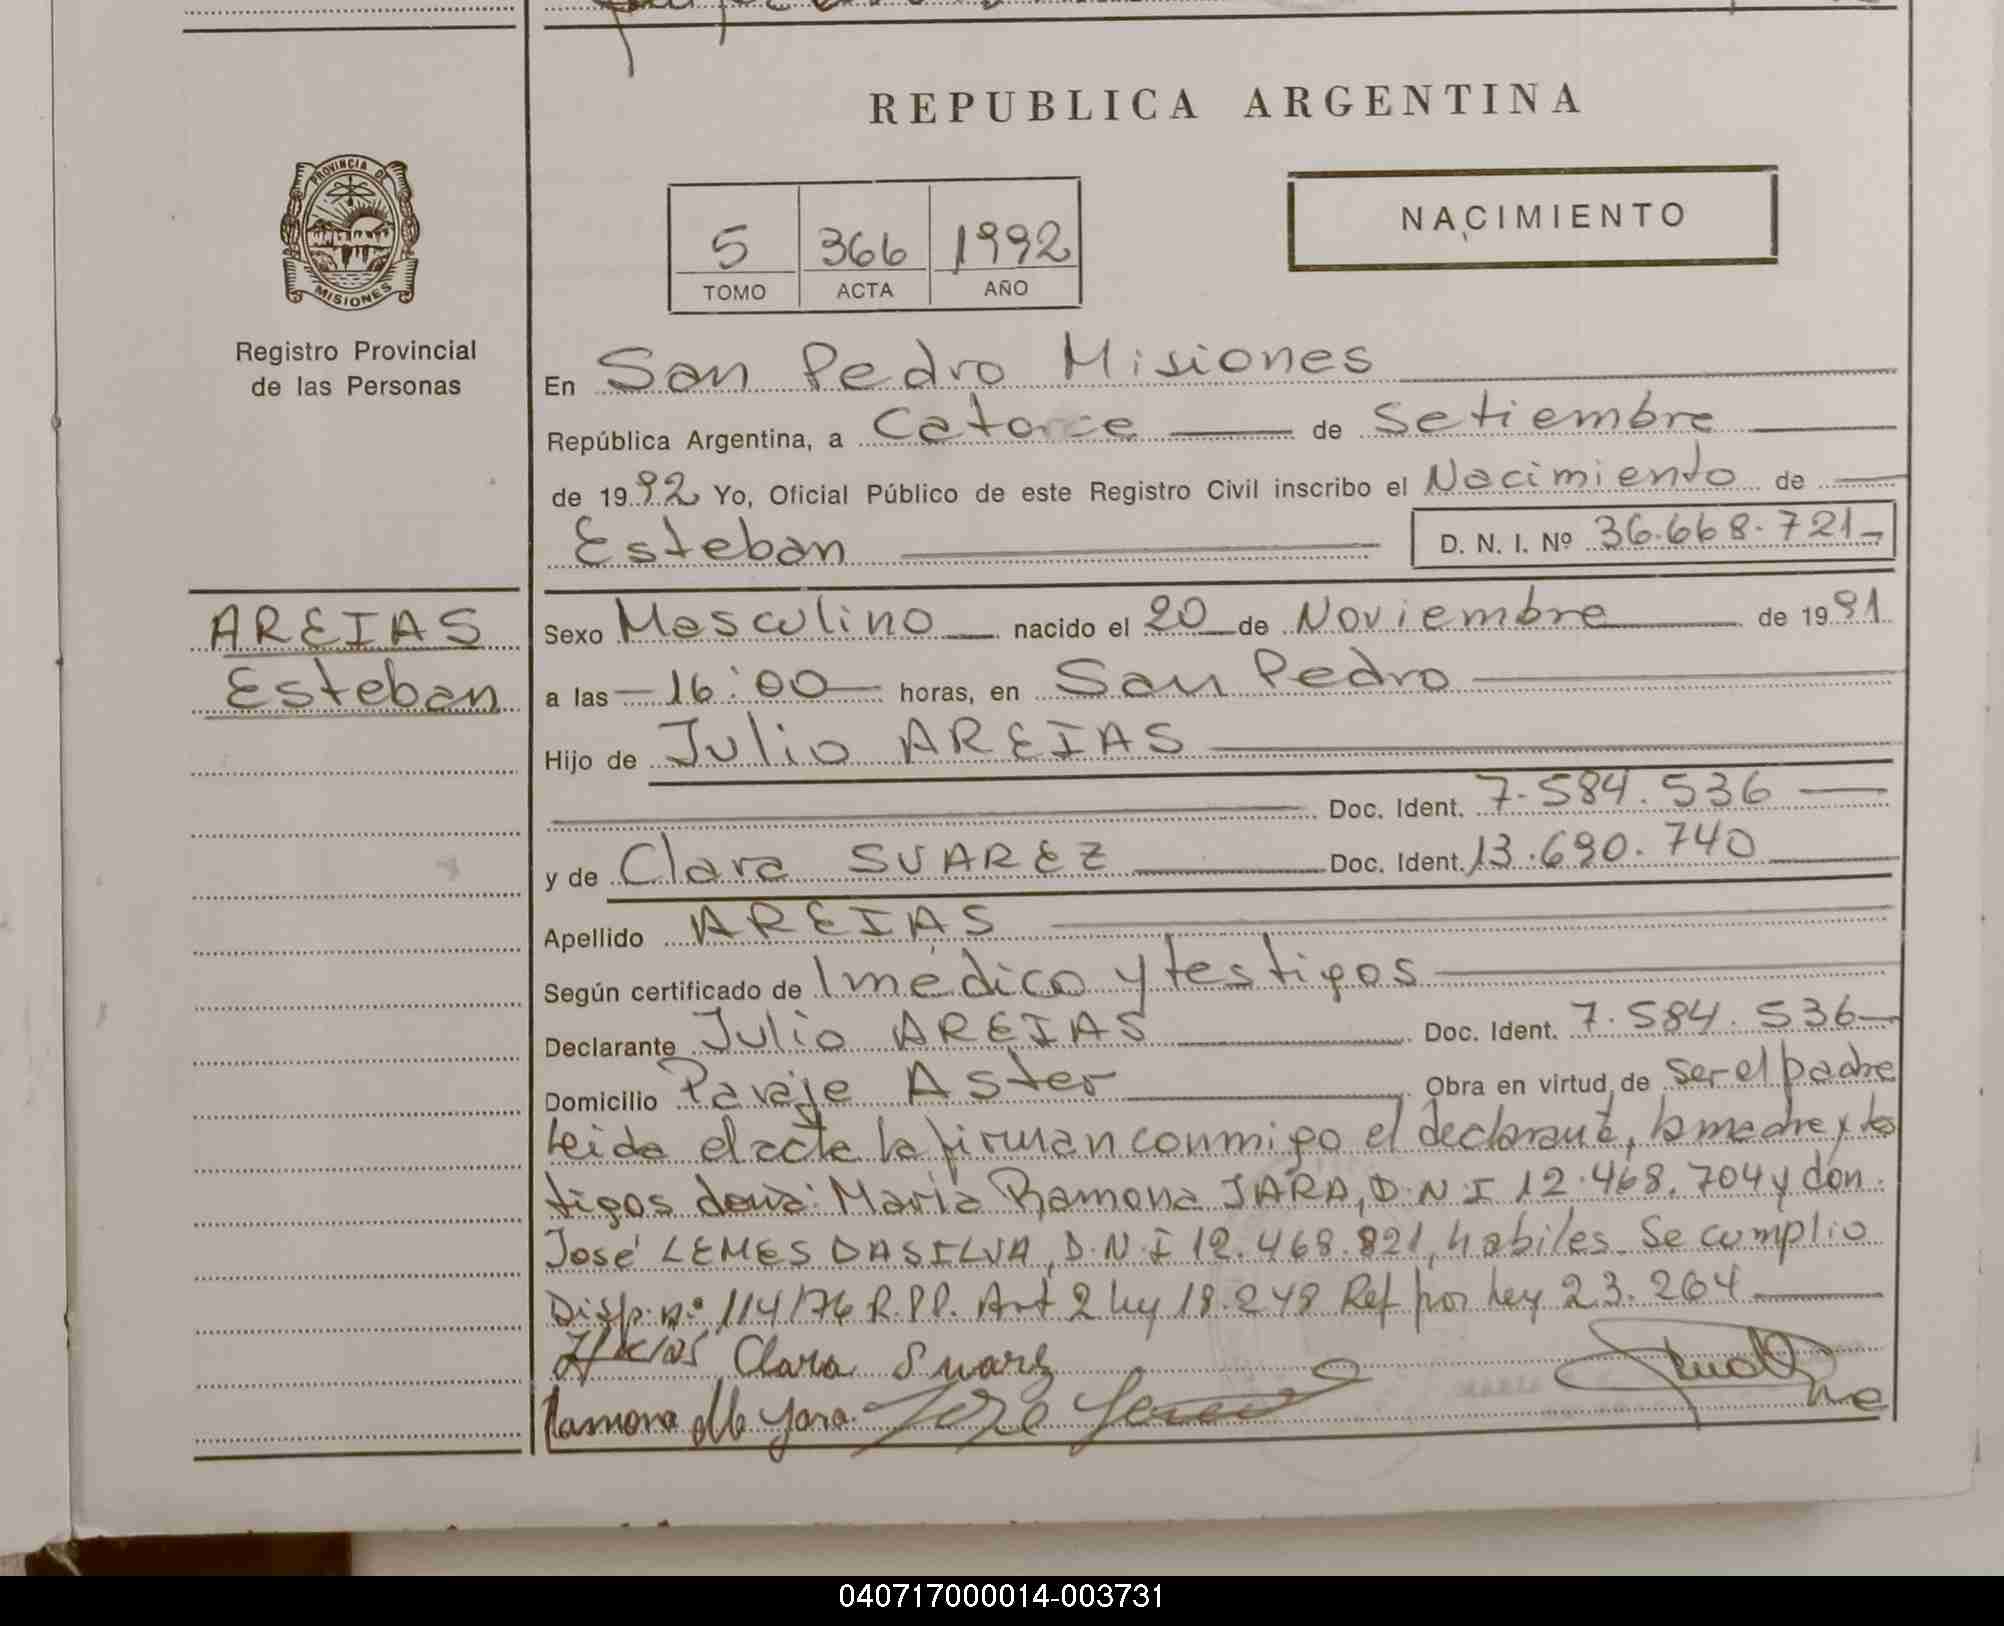 REPUBLICA ARGENTINA
PROVINCIA DE
MISIONES
Registro Provincial
de las Personas
5 366 1992
TOMO ACTA AÑO
NACIMIENTO
En San Pedro Misiones
República Argentina, a Catorce de Setiembre
de 1992 Yo, Oficial Público de este Registro Civil inscribo el Nacimiento de
Esteban D. N. I. Nº 36.668.721
AREIAS
Esteban
Sexo Masculino nacido el 20 de Noviembre de 1991
a las 16:00 horas, en San Pedro
Hijo de Julio AREIAS
Doc. Ident. 7.584.536
y de Clara SUAREZ Doc. Ident. 13.690.740
Apellido AREIAS
Según certificado de 1 médico y testigos
Declarante Julio AREIAS Doc. Ident. 7.584.536
Domicilio Paraje Aster Obra en virtud de ser el padre
Leida el acta la firman conmigo el declarante, la madre y tes
tigos doña: Maria Ramona JARA, D.N.I 12.468.704 y don
José LEMES DASILVA, D.N.I 12.468.821, habiles. Se cumplio
Disp. nº 114/76 R.P.P. Art 2 ley 18.248 Ref por ley 23.264
Clara Suarz
Ramona Jara
040717000014-003731